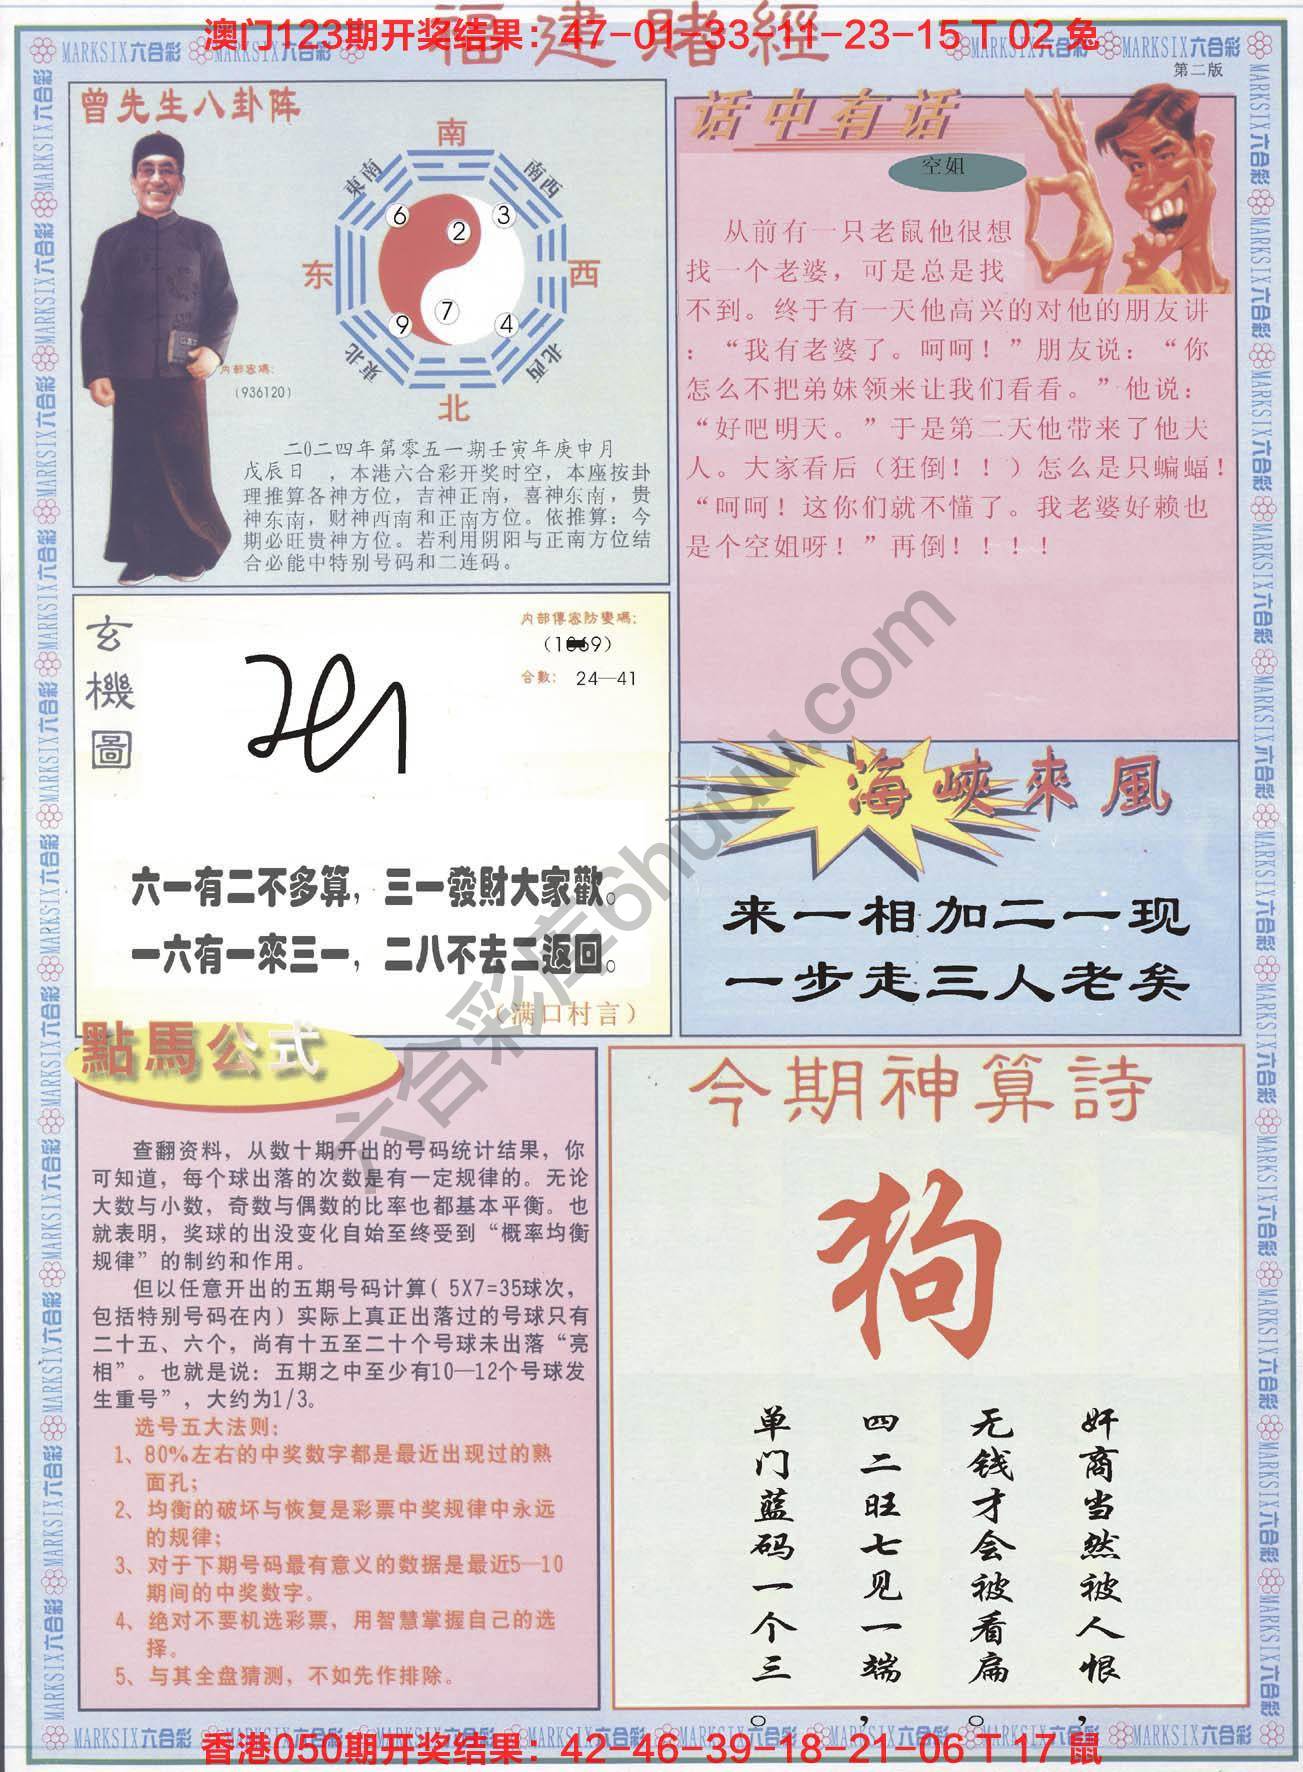 福建賭經
澳门123期开奖结果：47-01-33-11-23-15 T 02 兔
MARKSIX六合彩
第二版
曾先生八卦阵
南
東南
南西
6
2
3
东
西
9
7
4
東北
北西
北
内部密碼：
（936120）
二0二四年第零五一期壬寅年庚申月
戊辰日 ，本港六合彩开奖时空，本座按卦
理推算各神方位，吉神正南，喜神东南，贵
神东南，财神西南和正南方位。依推算：今
期必旺贵神方位。若利用阴阳与正南方位结
合必能中特别号码和二连码。
话中有话
空姐
从前有一只老鼠他很想
找一个老婆，可是总是找
不到。终于有一天他高兴的对他的朋友讲
：“我有老婆了。呵呵！”朋友说：“你
怎么不把弟妹领来让我们看看。”他说：
“好吧明天。”于是第二天他带来了他夫
人。大家看后（狂倒！！）怎么是只蝙蝠！
“呵呵！这你们就不懂了。我老婆好赖也
是个空姐呀！”再倒！！！！
玄機圖
内部傳密防變碼：
合數： 24—41
六一有二不多算，三一發財大家歡。
一六有一來三一，二八不去二返回。
（满口村言）
海峽來風
来一相加二一现
一步走三人老矣
點馬公式
查翻资料，从数十期开出的号码统计结果，你
可知道，每个球出落的次数是有一定规律的。无论
大数与小数，奇数与偶数的比率也都基本平衡。也
就表明，奖球的出没变化自始至终受到“概率均衡
规律”的制约和作用。
但以任意开出的五期号码计算（5X7=35球次，
包括特别号码在内）实际上真正出落过的号球只有
二十五、六个，尚有十五至二十个号球未出落“亮
相”。也就是说：五期之中至少有10—12个号球发
生重号”，大约为1/3。
选号五大法则：
1、80%左右的中奖数字都是最近出现过的熟
面孔；
2、均衡的破坏与恢复是彩票中奖规律中永远
的规律；
3、对于下期号码最有意义的数据是最近5—10
期间的中奖数字。
4、绝对不要机选彩票，用智慧掌握自己的选
择。
5、与其全盘猜测，不如先作排除。
今期神算詩
狗
奸商当然被人恨，
无钱才会被看扁。
四二旺七见一端，
单门蓝码一个三。
六合彩库6huuu.com
香港050期开奖结果：42-46-39-18-21-06 T 17 鼠